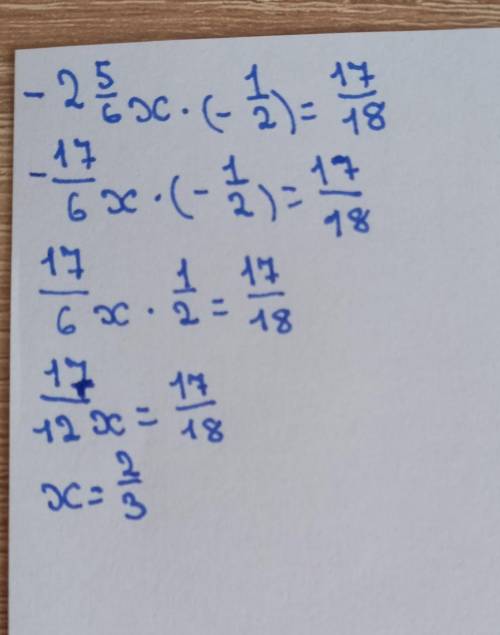 -2 5/6 x · (- 1/2) = 17/18
- 17/6 x · (- 1/2) = 17/18
17/6 x · 1/2 = 17/18
17/12 x = 17/18
x = 2/3